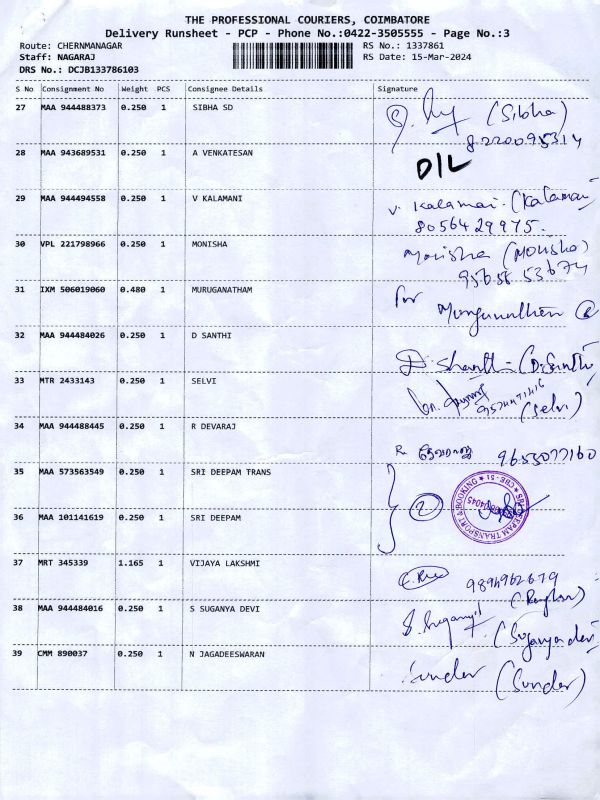 THE PROFESSIONAL COURIERS, COIMBATORE
Delivery Runsheet - PCP - Phone No.:0422-3505555 - Page No.:3
Route: CHERNMANAGAR RS No.: 1337861
Staff: NAGARAJ RS Date: 15-Mar-2024
DRS No.: DCJB133786103
S No Consignment No Weight PCS Consignee Details Signature
27 MAA 944488373 0.250 1 SIBHA SD (Sibha)
28 MAA 943689531 0.250 1 A VENKATESAN D/L
29 MAA 944494558 0.250 1 V KALAMANI V. Kalamai. (Kalamai
8056429975.
30 VPL 221798966 0.250 1 MONISHA Monisha (Monisha)
95658 53674
31 IXM 506019060 0.480 1 MURUGANATHAM for
32 MAA 944484026 0.250 1 D SANTHI D. Shanthi (D. Santhi)
33 MTR 2433143 0.250 1 SELVI (Selvi)
34 MAA 944488445 1 R DEVARAJ R. தேவராஜ் 9655077160
35 MAA 573563549 0.250 1 SRI DEEPAM TRANS
36 MAA 101141619 0.250 1 SRI DEEPAM 2
TRANSPORT & BOOKING
CBE-51
37 MRT 345339 1.165 1 VIJAYA LAKSHMI 9894962679
38 MAA 944484016 0.250 1 S SUGANYA DEVI S. Suganya (Suganya devi)
39 CMM 890037 0.250 1 N JAGADEESWARAN Sunder (Sunder)